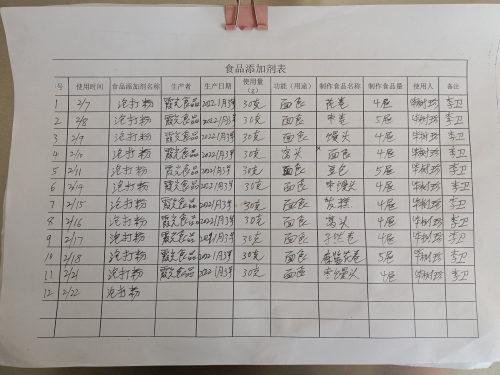 食品添加剂表
号 使用时间 食品添加剂名称 生产者 生产日期 使用量（g） 功能（用途） 制作食品名称 制作食品量 使用人 备注
1 2/7 泡打粉 霞光食品 2022/1月3号 30克 面食 花卷 4屉 李卫
2 2/8 泡打粉 霞光食品 30克 面食 枣卷 5屉 李卫
3 2/9 泡打粉 霞光食品 2022/1月3号 30克 面食 馒头 4屉 李卫
4 泡打粉 霞光食品 2022/1月3号 30克 窝头 面食 4屉 李卫
5 2/11 泡打粉 霞光食品 2022/1月3号 30克 面食 豆包 5屉 李卫
6 2/14 泡打粉 霞光食品 2022/1月3号 30克 面食 枣馒头 4屉 李卫
7 2/15 泡打粉 霞光食品 2022/1月3号 30克 面食 发糕 4屉 李卫
8 2/16 泡打粉 霞光食品 2022/1月3号 30克 面食 窝头 4屉 李卫
9 2/17 泡打粉 霞光食品 30克 面食 4屉 李卫
10 2/18 泡打粉 霞光食品 2022/1月3号 30克 面食 5屉 李卫
11 2/21 泡打粉 霞光食品 2022/1月3号 30克 面食 枣馒头 4屉 李卫
12 2/22 泡打粉